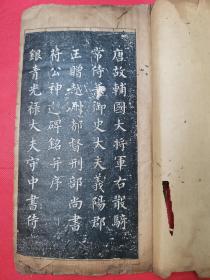 唐故輔國大將軍右散騎
常侍兼御史大夫義陽郡
王贈越州都督刑部尚書
苻公神道碑銘并序
銀青光禄大夫守中書侍